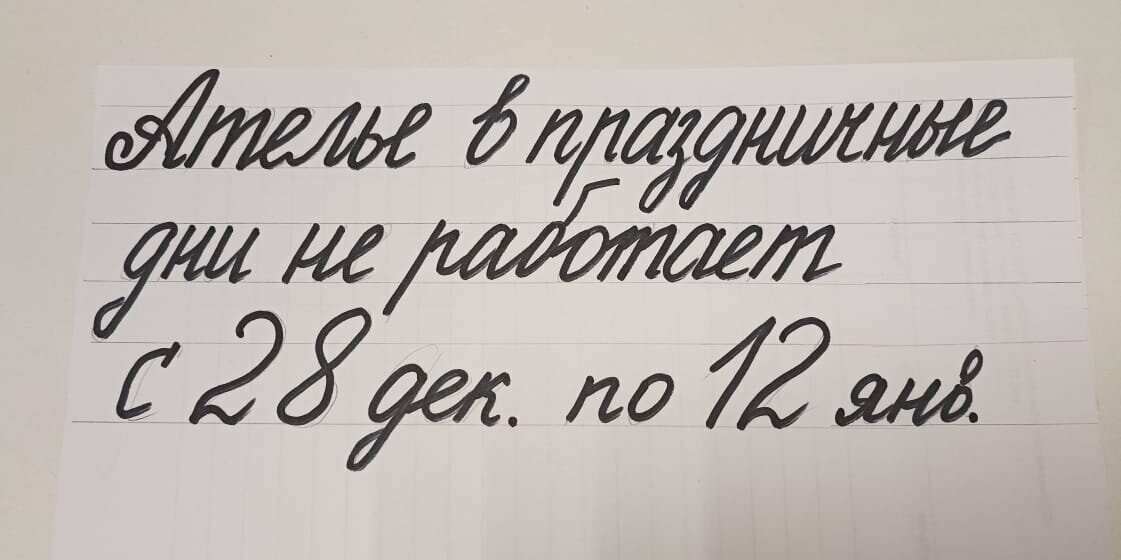 Ателье в праздничные
дни не работает
с 28 дек. по 12 янв.